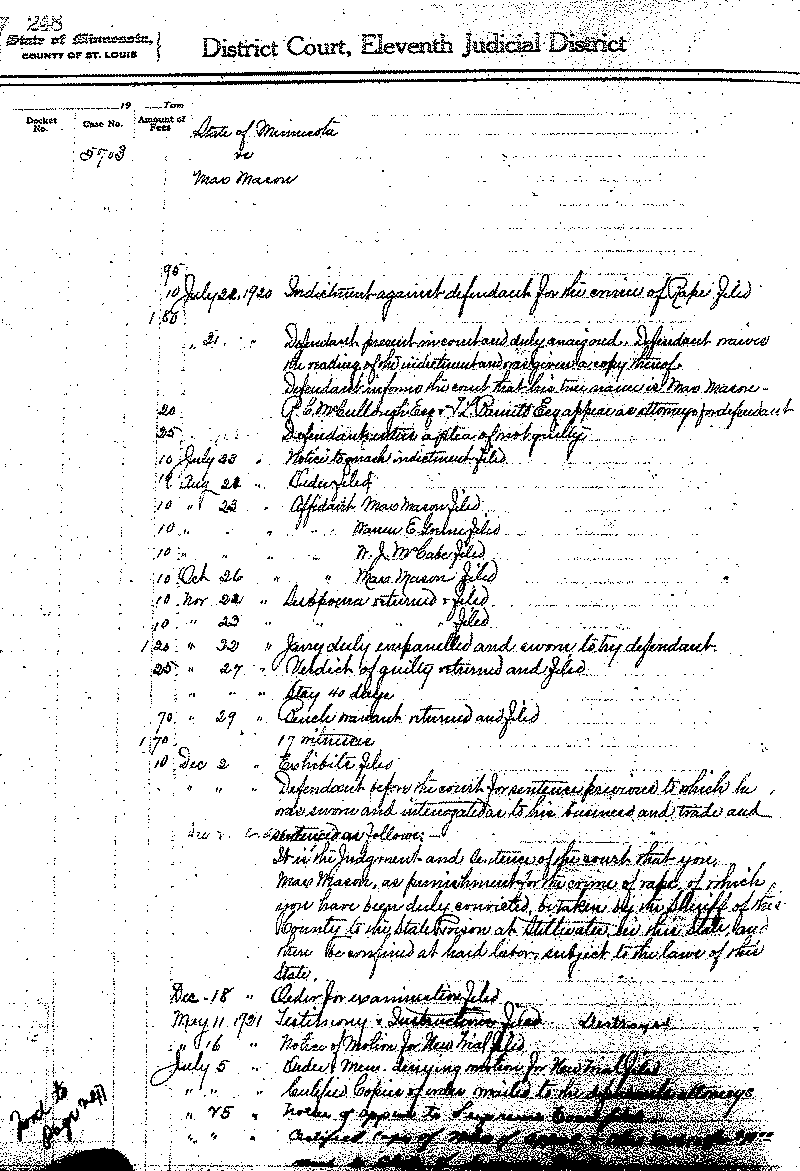 248
State of Minnesota,
COUNTY OF ST. LOUIS
District Court, Eleventh Judicial District
19 Term
Docket No. Case No. Amount of Fees
State of Minnesota
5703 vs
Max Mason
95
10 July 22, 1920 Indictment against defendant for the crime of Rape filed
1 50
" 21 " Defendant present in court and duly arraigned. Defendant waives
the reading of the indictment and was given a copy thereof.
Defendant informs the court that his true name is Max Mason -
20 Esq & Esq appear as attorneys for defendant
25 Defendant enters a plea of not guilty
10 July 23 " Notice to quash indictment filed
10 Aug 21 " Order filed
10 " 23 " Affidavit Max Mason filed
10 " " " " filed
10 " " " " W. J. McCabe filed
10 Oct 26 " " Max Mason filed
10 Nov 22 " Subpoena returned & filed
10 " 23 " " " filed
1 20 " 22 " Jury duly empanelled and sworn to try defendant.
25 " 27 " Verdict of guilty returned and filed
" " " Stay 40 days
70 " 29 " Bench warrant returned and filed
1 70 17 witnesses
10 Dec 2 " Exhibits filed
" " " Defendant before the court for sentence previous to which he
was sworn and interrogated as to his business and trade and
sentenced as follows: -
It is the Judgment and Sentence of the court that you,
Max Mason, as punishment for the crime of rape, of which
you have been duly convicted, be taken by the Sheriff of this
County to the State Prison at Stillwater, in this State, and
there be confined at hard labor, subject to the laws of this
State.
Dec - 18 " Order for examination filed
May 11 1921 Testimony & Instructions filed Destroyed
" 16 " Notice of Motion for New Trial filed
July 5 " Order & Mem. denying motion for New Trial filed
" " " Certified Copies of order mailed to the attorneys
" 25 " Notice of appeal to Supreme Court filed
" " " Certified Copy of
Page 247